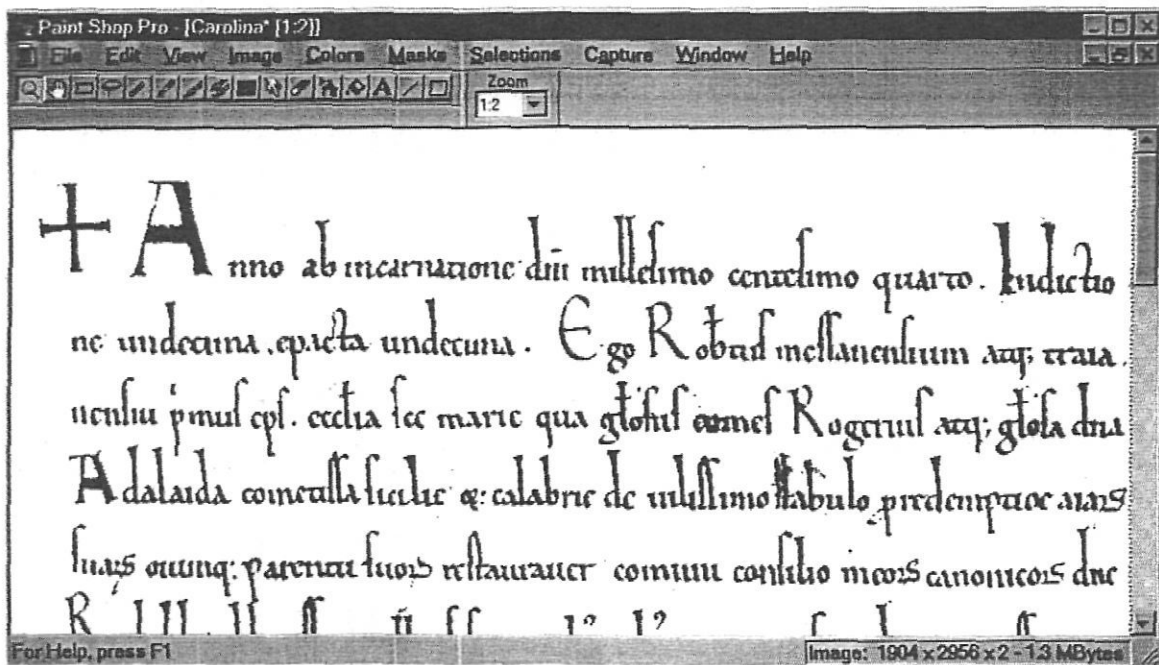 Paint Shop Pro - [Carolina* [1:2]]
File Edit View Image Colors Masks Selections Capture Window Help
Zoom
1:2
+ Anno ab incarnatione dñi millesimo centesimo quarto. Indictio
ne undecima, epacta undecima. Ego Robtus messanensium atq; traia.
nensiu pmus eps. ecclia sce marie qua głosus comes Rogerius atq; głosa dna
Adalaida cometissa sicilie &: calabrie de vilissimo stabulo p redemptioe
suaꝝ parentu suoꝝ restauraver comuni consilio meoꝝ canonicoꝝ
For Help, press F1
Image: 1904 x 2956 x 2 - 1.3 MBytes